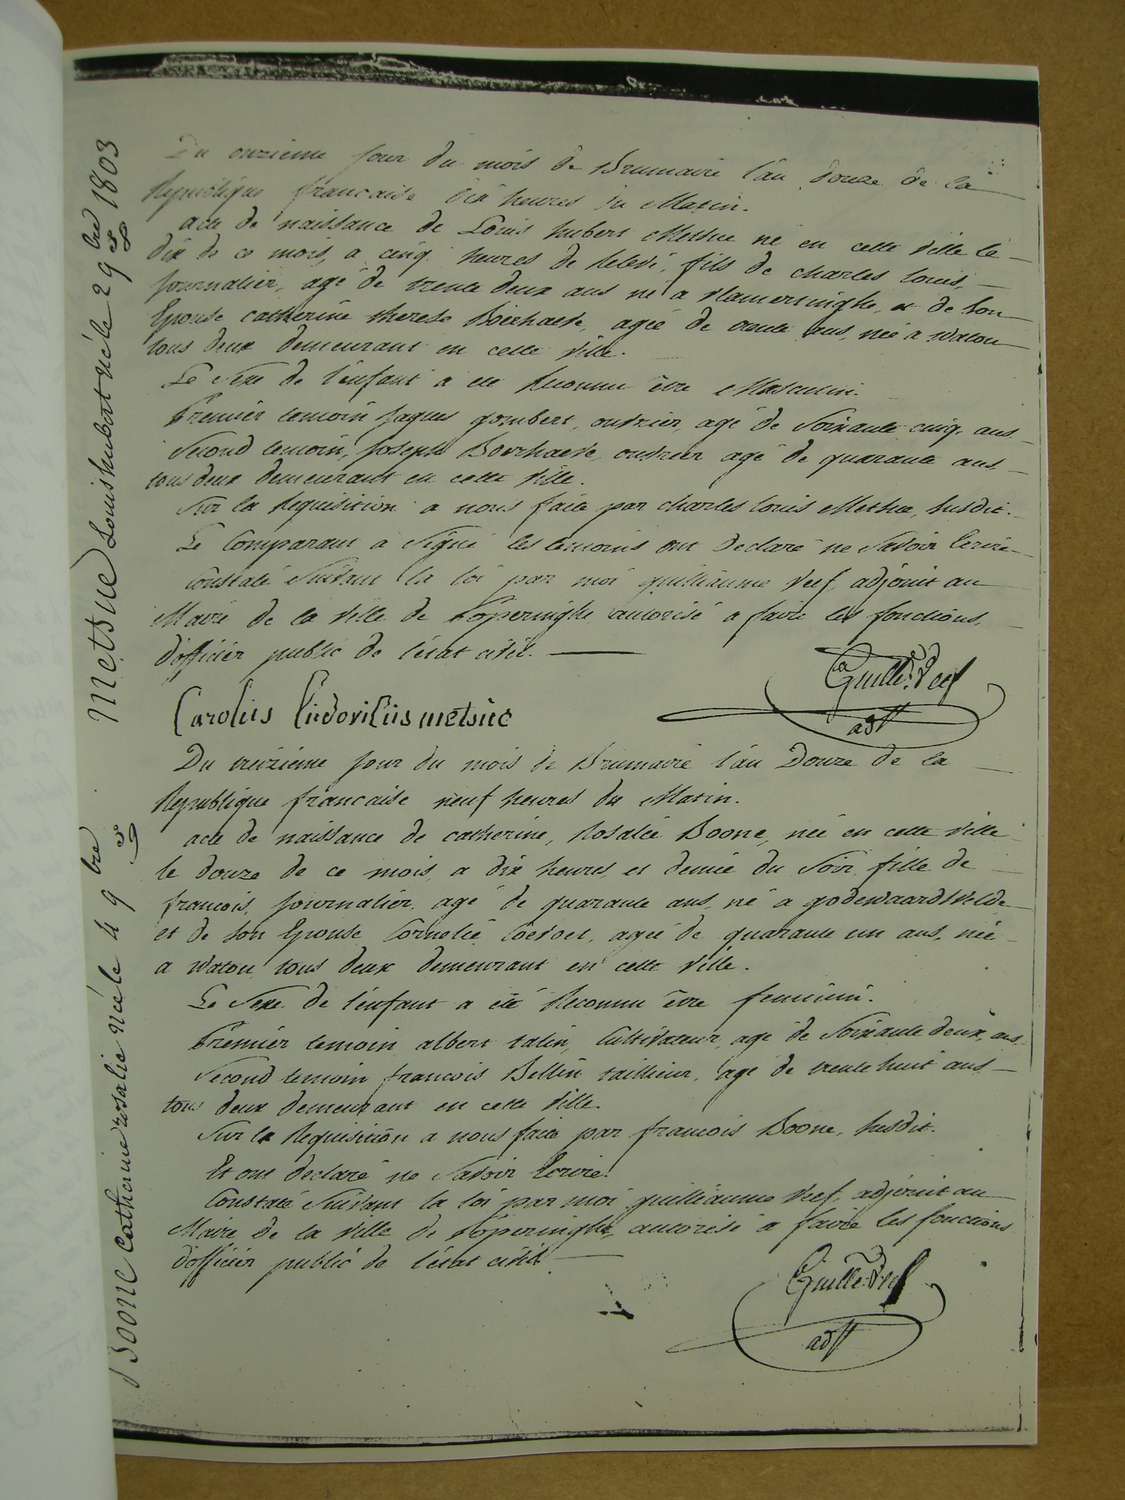 Du onzieme jour du mois de Brumaire l'an Douze de la
Republique francaise dix heures du Matin.
acte de naissance de Louis hubert Metsue né en cette ville le
dix de ce mois, a cinq heures de Relevé, fils de charles Louis,
journalier, agé de trente deux ans né a vlamertinghe, et de son
Epouse catherine therese Boerhaeve, agée de trente ans, née a watou
tous deux demeurant en cette ville.
Le Sexe de l'enfant a eté Reconnu être Masculin.
Premier temoin jaques gombert, ouvrier, agé de Soixante cinq ans
Second temoin, joseph Boerhaeve, ouvrier agé de quarante ans
tous deux demeurant en cette ville.
Sur la Requisition a nous faite par charles louis Metsue, Susdit.
Le Comparant a Signé les temoins ont Declaré ne Savoir Ecrire
constaté Suivant la loi par moi guilliaume Veef adjoint au
Maire de la ville de Poperinghe autorisé a faire les fonctions
d'officier public de l'etat civil.
Guille. Veef
adjt
Carolus Ludovicus metsue
Du treizieme jour du mois de Brumaire l'an Douze de la
Republique francaise neuf heures du Matin.
acte de naissance de catherine, Rosalie Boone, née en cette ville
le douze de ce mois, a dix heures et demie du Soir fille de
francois, journalier, agé de quarante ans, né a godewaardsvelde
et de son Epouse Cornelie Coevoet, agée de quarante un ans, née
a watou tous deux demeurant en cette ville.
Le Sexe de l'enfant a eté Reconnu être feminin.
Premier temoin albert talin, Cultivateur, agé de Soixante deux ans
Second temoin francois Bellin taillieur, agé de trente huit ans
tous deux demeurant en cette ville.
Sur la Requisition a nous faite par francois Boone, Susdit.
Et ont declaré ne Savoir Ecrire.
Constaté Suivant la loi par moi guilliaume Veef, adjoint au
Maire de la ville de Poperinghe, autorisé a faire les fonctions
d'officier public de l'etat civil
Guille. Veef
adjt
Metsue Louis hubert né le 2 9bre 1803
Boone Catherine rosalie née le 4 9bre